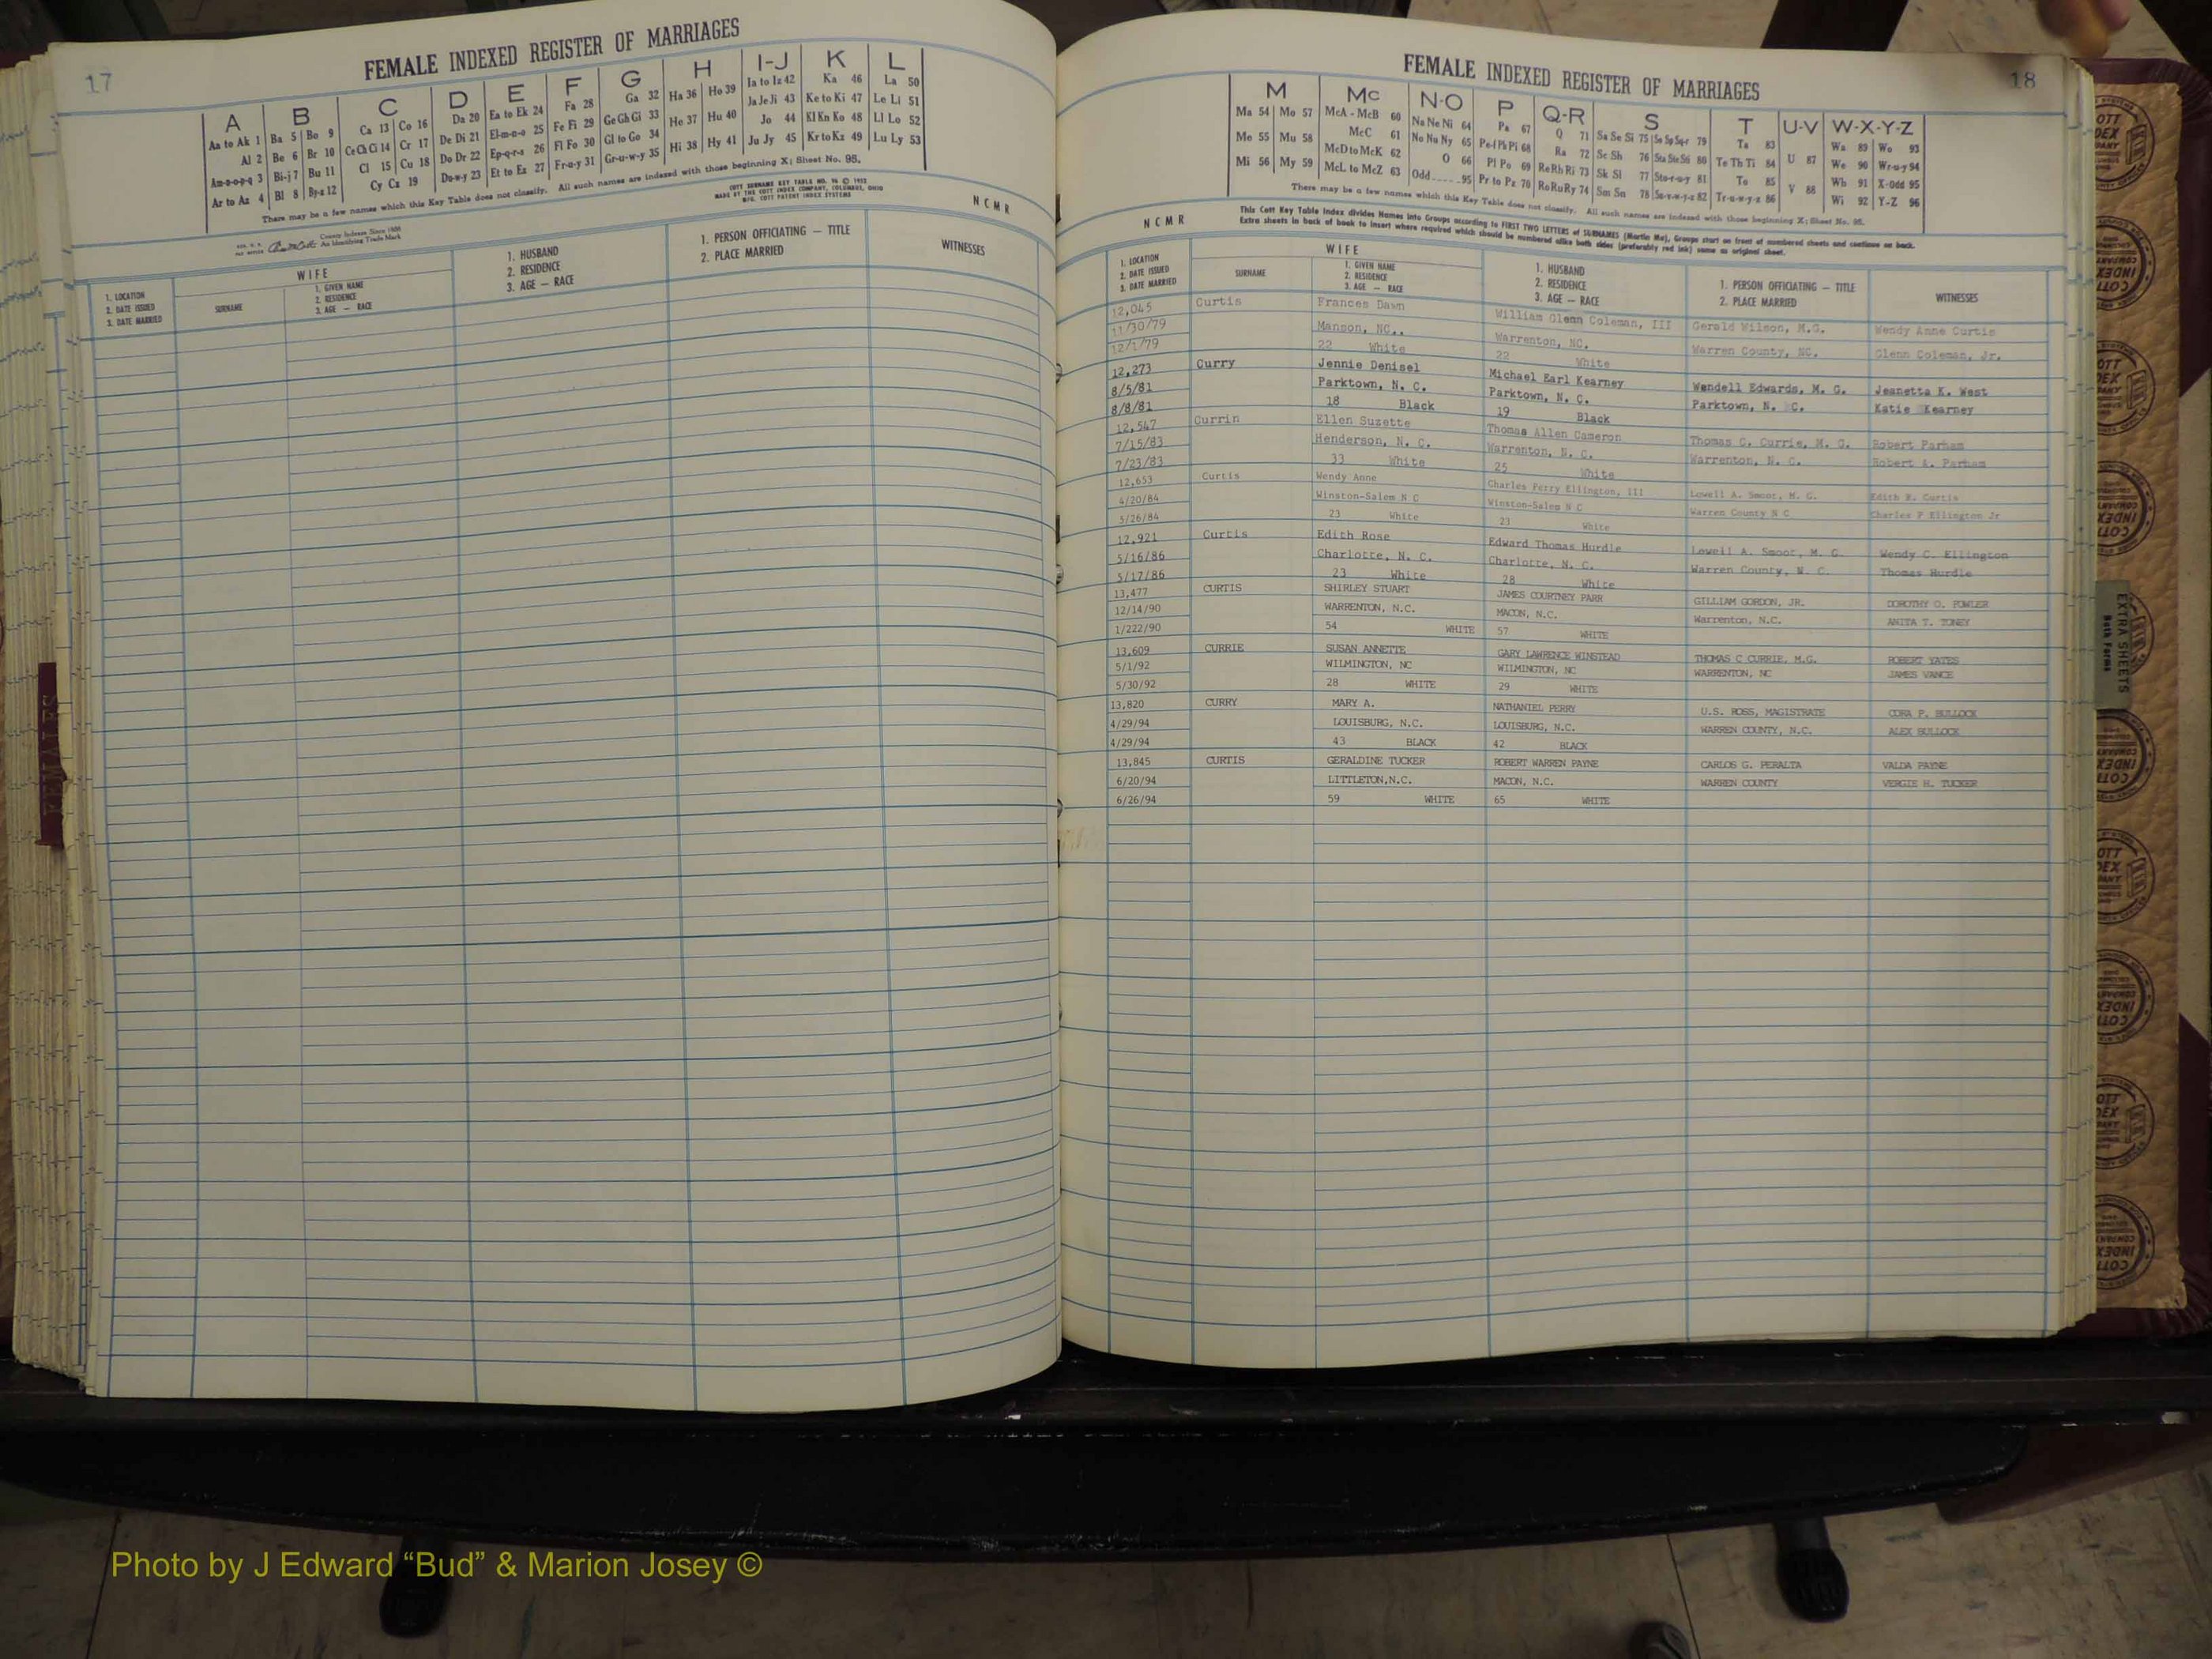 17
FEMALE INDEXED REGISTER OF MARRIAGES
A B C D E F G H I-J K L
Aa to Ak 1 Ba 5 Bo 9 Ca 13 Co 16 Da 20 Ea to Ek 24 Fa 28 Ga 32 Ha 36 Ho 39 Ia to Iz 42 Ka 46 La 50
Al 2 Be 6 Br 10 Ce Ch Ci 14 Cr 17 De Di 21 El-m-n-o 25 Fe Fi 29 Ge Gh Gi 33 He 37 Hu 40 Ja Je Ji 43 Ke to Ki 47 Le Li 51
Am-n-o-p-q 3 Bi-j 7 Bu 11 Cl 15 Cu 18 Do Dr 22 Ep-q-r-s 26 Fl Fo 30 Gl to Go 34 Hi 38 Hy 41 Jo 44 Kl Kn Ko 48 Ll Lo 52
Ar to Az 4 Bl 8 By-z 12 Cy Cz 19 Du-w-y 23 Et to Ez 27 Fr-u-y 31 Gr-u-w-y 35 Ju Jy 45 Kr to Kz 49 Lu Ly 53
There may be a few names which this Key Table does not classify. All such names are indexed with those beginning X; Sheet No. 95.
County Indexes Since 1888
An Identifying Trade Mark
COTT SURNAME KEY TABLE NO.
MADE BY THE COTT INDEX COMPANY, COLUMBUS, OHIO
MFG. COTT PATENT INDEX SYSTEMS
NCMR
1. LOCATION
2. DATE ISSUED
3. DATE MARRIED
WIFE
SURNAME
1. GIVEN NAME
2. RESIDENCE
3. AGE — RACE
1. HUSBAND
2. RESIDENCE
3. AGE — RACE
1. PERSON OFFICIATING — TITLE
2. PLACE MARRIED
WITNESSES
FEMALES
FEMALE INDEXED REGISTER OF MARRIAGES
18
M Mc N-O P Q-R S T U-V W-X-Y-Z
Ma 54 Mo 57 McA - McB 60 Na Ne Ni 64 Pa 67 Q 71 Sa Se Si 75 So Sp Sq-r 79 Ta 83 U 87 Wa 89 Wo 93
Me 55 Mu 58 McC 61 No Nu Ny 65 Pe-f Ph Pi 68 Ra 72 Sc Sh 76 Sta Ste Sti 80 Te Th Ti 84 V 88 We 90 Wr-u-y 94
Mi 56 My 59 McD to McK 62 O 66 Pl Po 69 Re Rh Ri 73 Sk Sl 77 Sto-r-u-y 81 To 85 Wh 91 X-Odd 95
McL to McZ 63 Odd 95 Pr to Pz 70 Ro Ru Ry 74 Sm Sn 78 Su-v-w-y-z 82 Tr-u-w-y-z 86 Wi 92 Y-Z 96
There may be a few names which this Key Table does not classify. All such names are indexed with those beginning X; Sheet No. 95.
NCMR
This Cott Key Table Index divides Names into Groups according to FIRST TWO LETTERS of SURNAMES (Martin Ma), Groups start on front of numbered sheets and continue on back.
Extra sheets in back of book to insert where required which should be numbered alike both sides (preferably red ink) same as original sheet.
1. LOCATION
2. DATE ISSUED
3. DATE MARRIED
WIFE
SURNAME
1. GIVEN NAME
2. RESIDENCE
3. AGE — RACE
1. HUSBAND
2. RESIDENCE
3. AGE — RACE
1. PERSON OFFICIATING — TITLE
2. PLACE MARRIED
WITNESSES
12,045 Curtis Frances Dawn William Glenn Coleman, III Gerald Wilson, M.G. Wendy Anne Curtis
11/30/79 Manson, NC.. Warrenton, NC. Warren County, NC. Glenn Coleman, Jr.
12/1/79 22 White 22 White
12,273 Curry Jennie Denisel Michael Earl Kearney Wendell Edwards, M. G. Jeanetta K. West
8/5/81 Parktown, N. C. Parktown, N. C. Parktown, N. C. Katie Kearney
8/8/81 18 Black 19 Black
12,547 Currin Ellen Suzette Thomas Allen Cameron Thomas C. Currie, M. G. Robert Parham
7/15/83 Henderson, N. C. Warrenton, N. C. Warrenton, N. C. Robert A. Parham
7/23/83 33 White 25 White
12,653 Curtis Wendy Anne Charles Perry Ellington, III Lowell A. Smoot, M. G. Edith R. Curtis
4/20/84 Winston-Salem N C Winston-Salem N C Warren County N C Charles P Ellington Jr
5/26/84 23 White 23 White
12,921 Curtis Edith Rose Edward Thomas Hurdle Lowell A. Smoot, M. G. Wendy C. Ellington
5/16/86 Charlotte, N. C. Charlotte, N. C. Warren County, N. C. Thomas Hurdle
5/17/86 23 White 28 White
13,477 CURTIS SHIRLEY STUART JAMES COURTNEY PARR GILLIAM GORDON, JR. DOROTHY O. FOWLER
12/14/90 WARRENTON, N.C. MACON, N.C. Warrenton, N.C. ANITA T. TONEY
1/222/90 54 WHITE 57 WHITE
13,609 CURRIE SUSAN ANNETTE GARY LAWRENCE WINSTEAD THOMAS C CURRIE, M.G. ROBERT YATES
5/1/92 WILMINGTON, NC WILMINGTON, NC WARRENTON, NC JAMES VANCE
5/30/92 28 WHITE 29 WHITE
13,820 CURRY MARY A. NATHANIEL PERRY U.S. ROSS, MAGISTRATE CORA P. BULLOCK
4/29/94 LOUISBURG, N.C. LOUISBURG, N.C. WARREN COUNTY, N.C. ALEX BULLOCK
4/29/94 43 BLACK 42 BLACK
13,845 CURTIS GERALDINE TUCKER ROBERT WARREN PAYNE CARLOS G. PERALTA VALDA PAYNE
6/20/94 LITTLETON,N.C. MACON, N.C. WARREN COUNTY VERGIE H. TUCKER
6/26/94 59 WHITE 65 WHITE
EXTRA SHEETS
Both Forms
Photo by J Edward “Bud” & Marion Josey ©